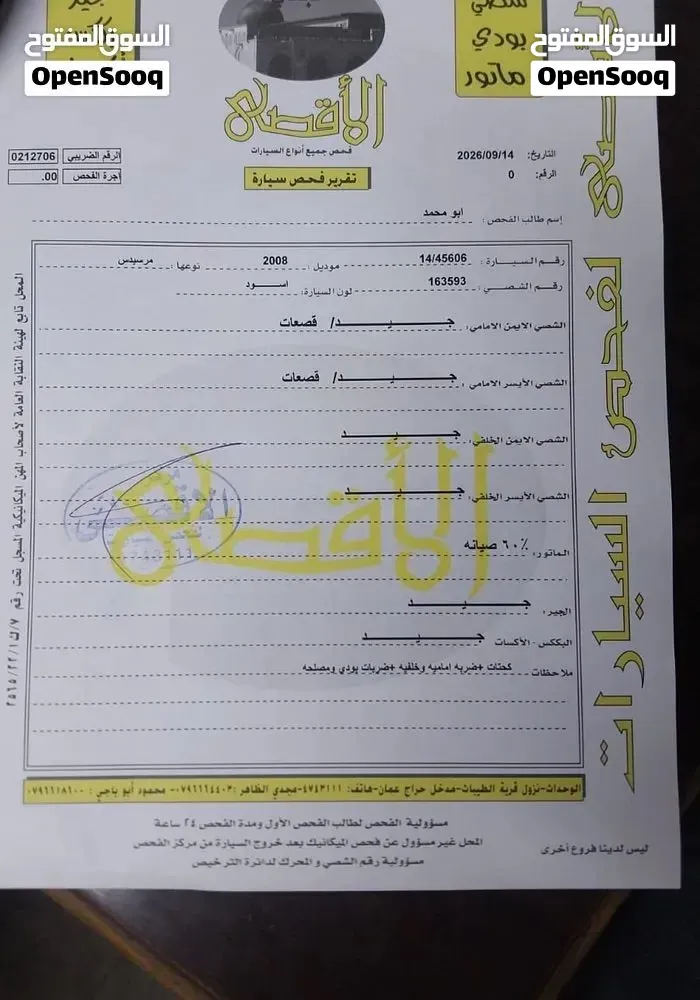 السوق المفتوح
OpenSooq
السوق المفتوح
OpenSooq
بودي
ماتور
الأقصى
فحص جميع أنواع السيارات
تقرير فحص سيارة
التاريخ: 2026/09/14
الرقم: 0
الرقم الضريبي 0212706
أجرة الفحص 00.
إسم طالب الفحص : ابو محمد
رقم السيارة : 14/45606 موديل : 2008 نوعها : مرسيدس
رقم الشصي : 163593 لون السيارة: اسود
الشصي الأيمن الامامي: جيد/ قصعات
الشصي الأيسر الامامي: جيد/ قصعات
الشصي الايمن الخلفي: جيد
الشصي الأيسر الخلفي: جيد
الماتور: ٦٠٪ صيانه
الجير: جيد
البككس - الأكسات جيد
ملاحظات كحتات +ضربه اماميه وخلفيه +ضربات بودي ومصلحه
الأقصى
لفحص السيارات
المحل تابع لهيئة النقابة العامة لأصحاب المهن الميكانيكية المسجل تحت رقم
الوحدات-نزول قرية الطيبات-مدخل حراج عمان-هاتف: ٤٧٤٣١١١-مجدي الظاهر :٠٧٩٦٦٦٤٤٠٣- محمود أبو ياجي : ٠٧٩٦٦١٨١٠٠
مسؤولية الفحص لطالب الفحص الأول ومدة الفحص ٢٤ ساعة
المحل غير مسؤول عن فحص الميكانيك بعد خروج السيارة من مركز الفحص
مسؤولية رقم الشصي و المحرك لدائرة الترخيص
ليس لدينا فروع أخرى